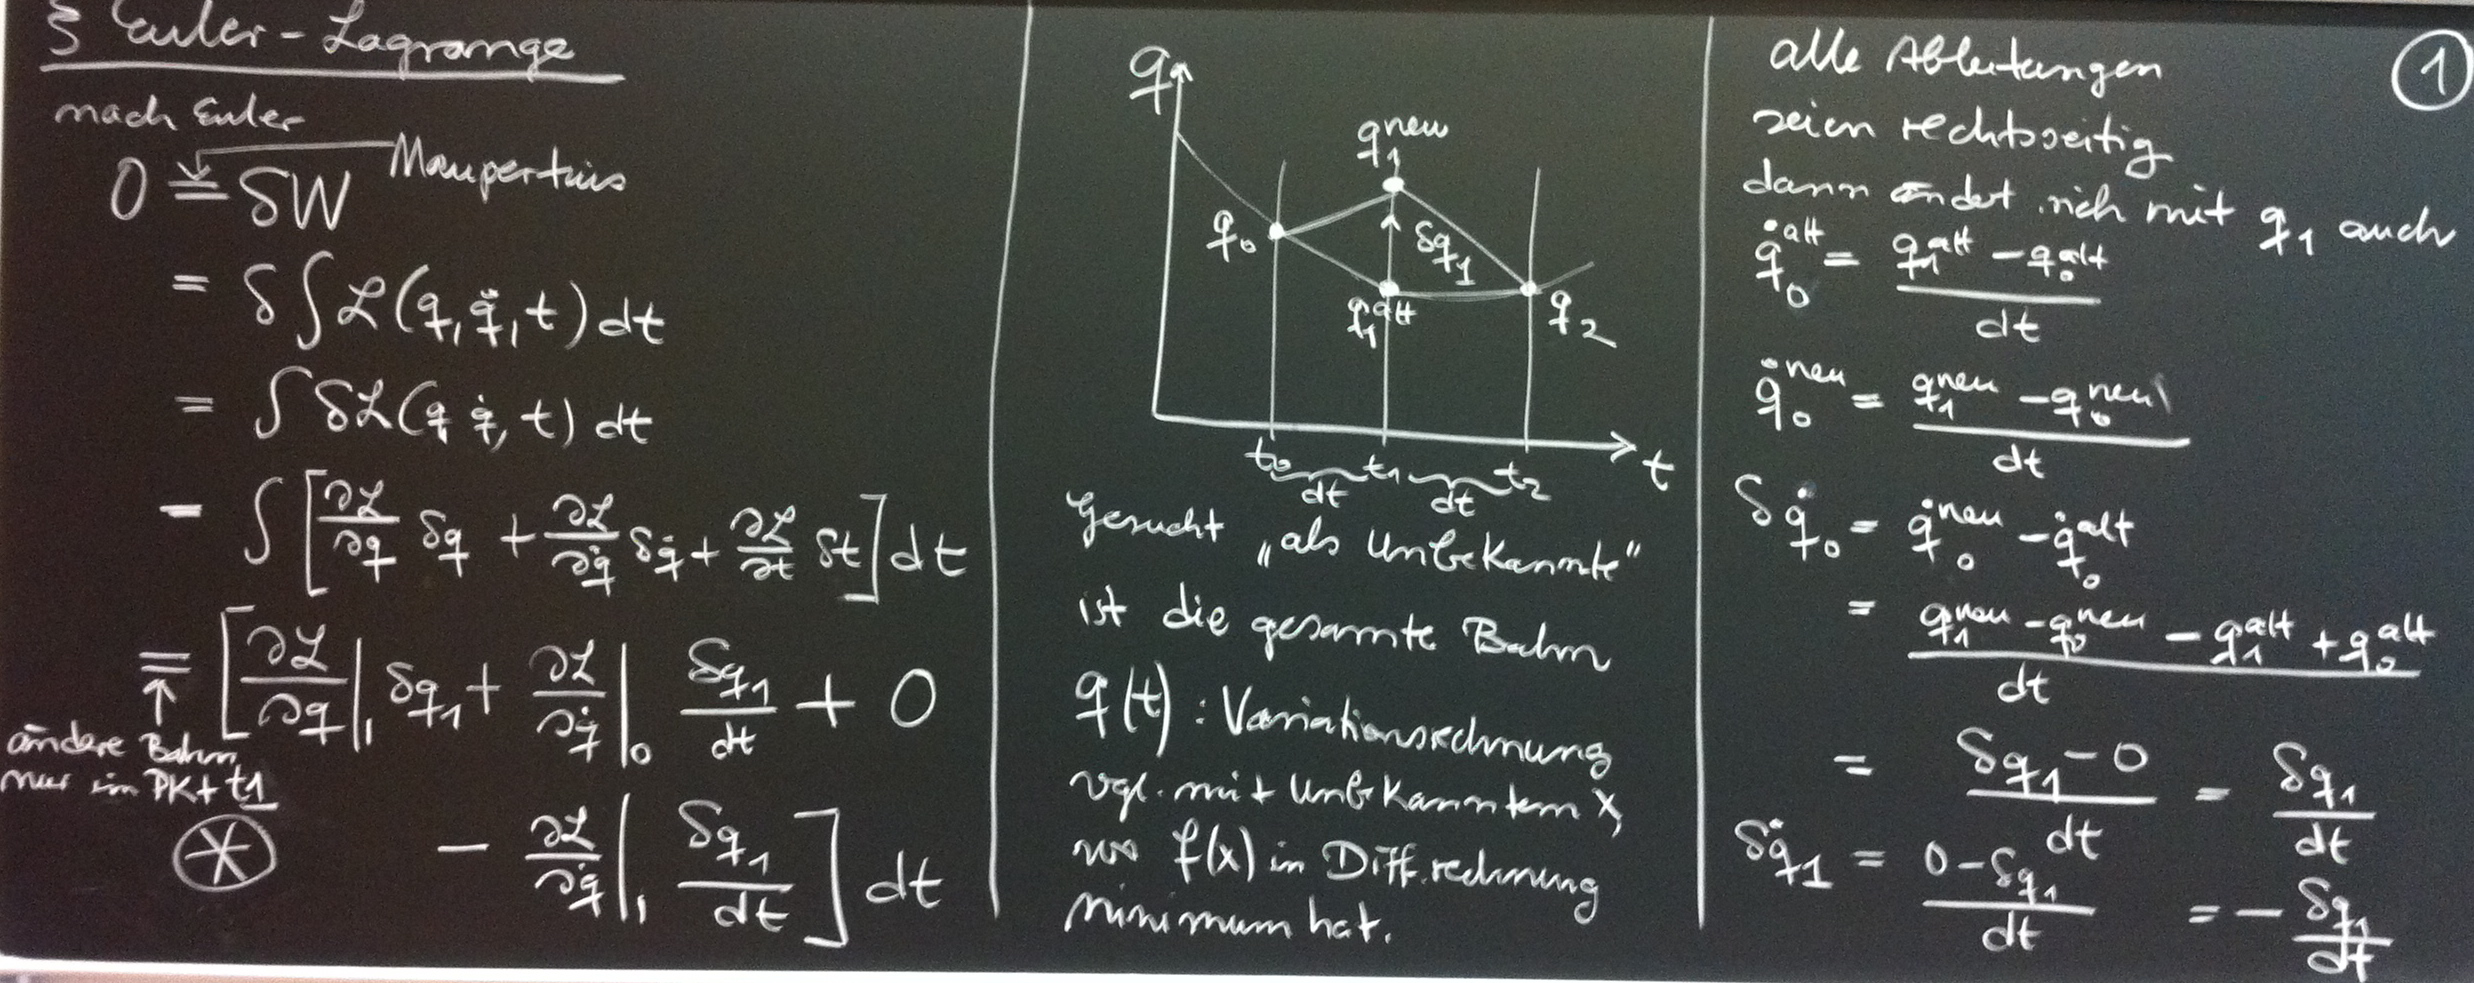 § Euler-Lagrange
nach Euler
Maupertuis
0 = δW
= δ∫ℒ(q,q̇,t)dt
= ∫δℒ(q,q̇,t)dt
= ∫[∂ℒ/∂q δq + ∂ℒ/∂q̇ δq̇ + ∂ℒ/∂t δt]dt
= [∂ℒ/∂q|₁ δq₁ + ∂ℒ/∂q̇|₀ δq₁/dt + 0
ändere Bahn
nur im PKt t1
⊛ - ∂ℒ/∂q̇|₁ δq₁/dt]dt
q
q₁ⁿᵉᵘ
q₀
δq₁
q₁ᵃˡᵗ
q₂
t₀ t₁ t₂ t
dt dt
Gesucht „als Unbekannte"
ist die gesamte Bahn
q(t): Variationsrechnung
vgl. mit Unbekanntem x,
wo f(x) in Diff.rechnung
minimum hat.
①
alle Ableitungen
seien rechtsseitig
dann ändet sich mit q₁ auch
q̇₀ᵃˡᵗ = (q₁ᵃˡᵗ - q₀ᵃˡᵗ)/dt
q̇₀ⁿᵉᵘ = (q₁ⁿᵉᵘ - q₀ⁿᵉᵘ)/dt
δq̇₀ = q̇₀ⁿᵉᵘ - q̇₀ᵃˡᵗ
= (q₁ⁿᵉᵘ - q₀ⁿᵉᵘ - q₁ᵃˡᵗ + q₀ᵃˡᵗ)/dt
= (δq₁ - 0)/dt = δq₁/dt
δq̇₁ = (0 - δq₁)/dt = - δq₁/dt